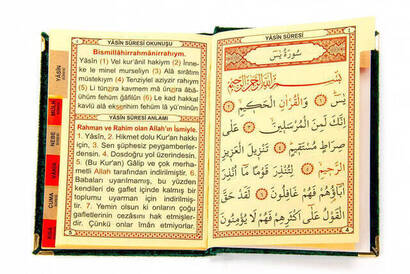 YÂSÎN SÛRESİ OKUNUŞU
Bismillâhirrahmânirrahıym.
Yâsîn (1) Vel kurânil hakiym (2) İnne-
ke le minel murseliyn (3) Alâ sırâtım
müstekıym (4) Tenziylel aziyzir rahıym
(5) Li tünzira kavmem mâ ünzira âbâ-
ühüm fehüm ğâfilûn (6) Le kad hakkal
kavlü alâ ekserihim fehüm lâ yü'minûn
YÂSÎN SÛRESİ ANLAMI
Rahman ve Rahim olan Allah'ın İsmiyle.
1. Yâsîn, 2. Hikmet dolu Kur'an hakkı
için, 3. Sen şüphesiz peygamberler-
densin. 4. Dosdoğru yol üzerindesin.
5. (Bu Kur'an) Gâlip ve çok merha-
metli Allah tarafından indirilmiştir. 6.
Babaları uyarılmamış, bu yüzden
kendileri de gaflet içinde kalmış bir
toplumu uyarman için indirilmiş-
tir. 7. Yemin olsun ki onların çoğu
gafletlerinin cezasını hak etmişler-
dir. Çünkü onlar İman etmiyorlar.
YÂSÎN
MÜLK
NEBE
CUMA
YÂSÎN SÛRESİ
سُورَةُ يٰسٓ
بِسْمِ اللّٰهِ الرَّحْمٰنِ الرَّحِيمِ
يٰسٓ ﴿١﴾ وَالْقُرْاٰنِ الْحَكِيمِ ﴿٢﴾
اِنَّكَ لَمِنَ الْمُرْسَلِينَ ﴿٣﴾ عَلٰى
صِرَاطٍ مُسْتَقِيمٍ ﴿٤﴾ تَنْزِيلَ الْعَزِيزِ
الرَّحِيمِ ﴿٥﴾ لِتُنْذِرَ قَوْمًا مَٓا اُنْذِرَ
اٰبَٓاؤُهُمْ فَهُمْ غَافِلُونَ ﴿٦﴾ لَقَدْ حَقَّ
الْقَوْلُ عَلٰٓى اَكْثَرِهِمْ فَهُمْ لَا يُؤْمِنُونَ
4